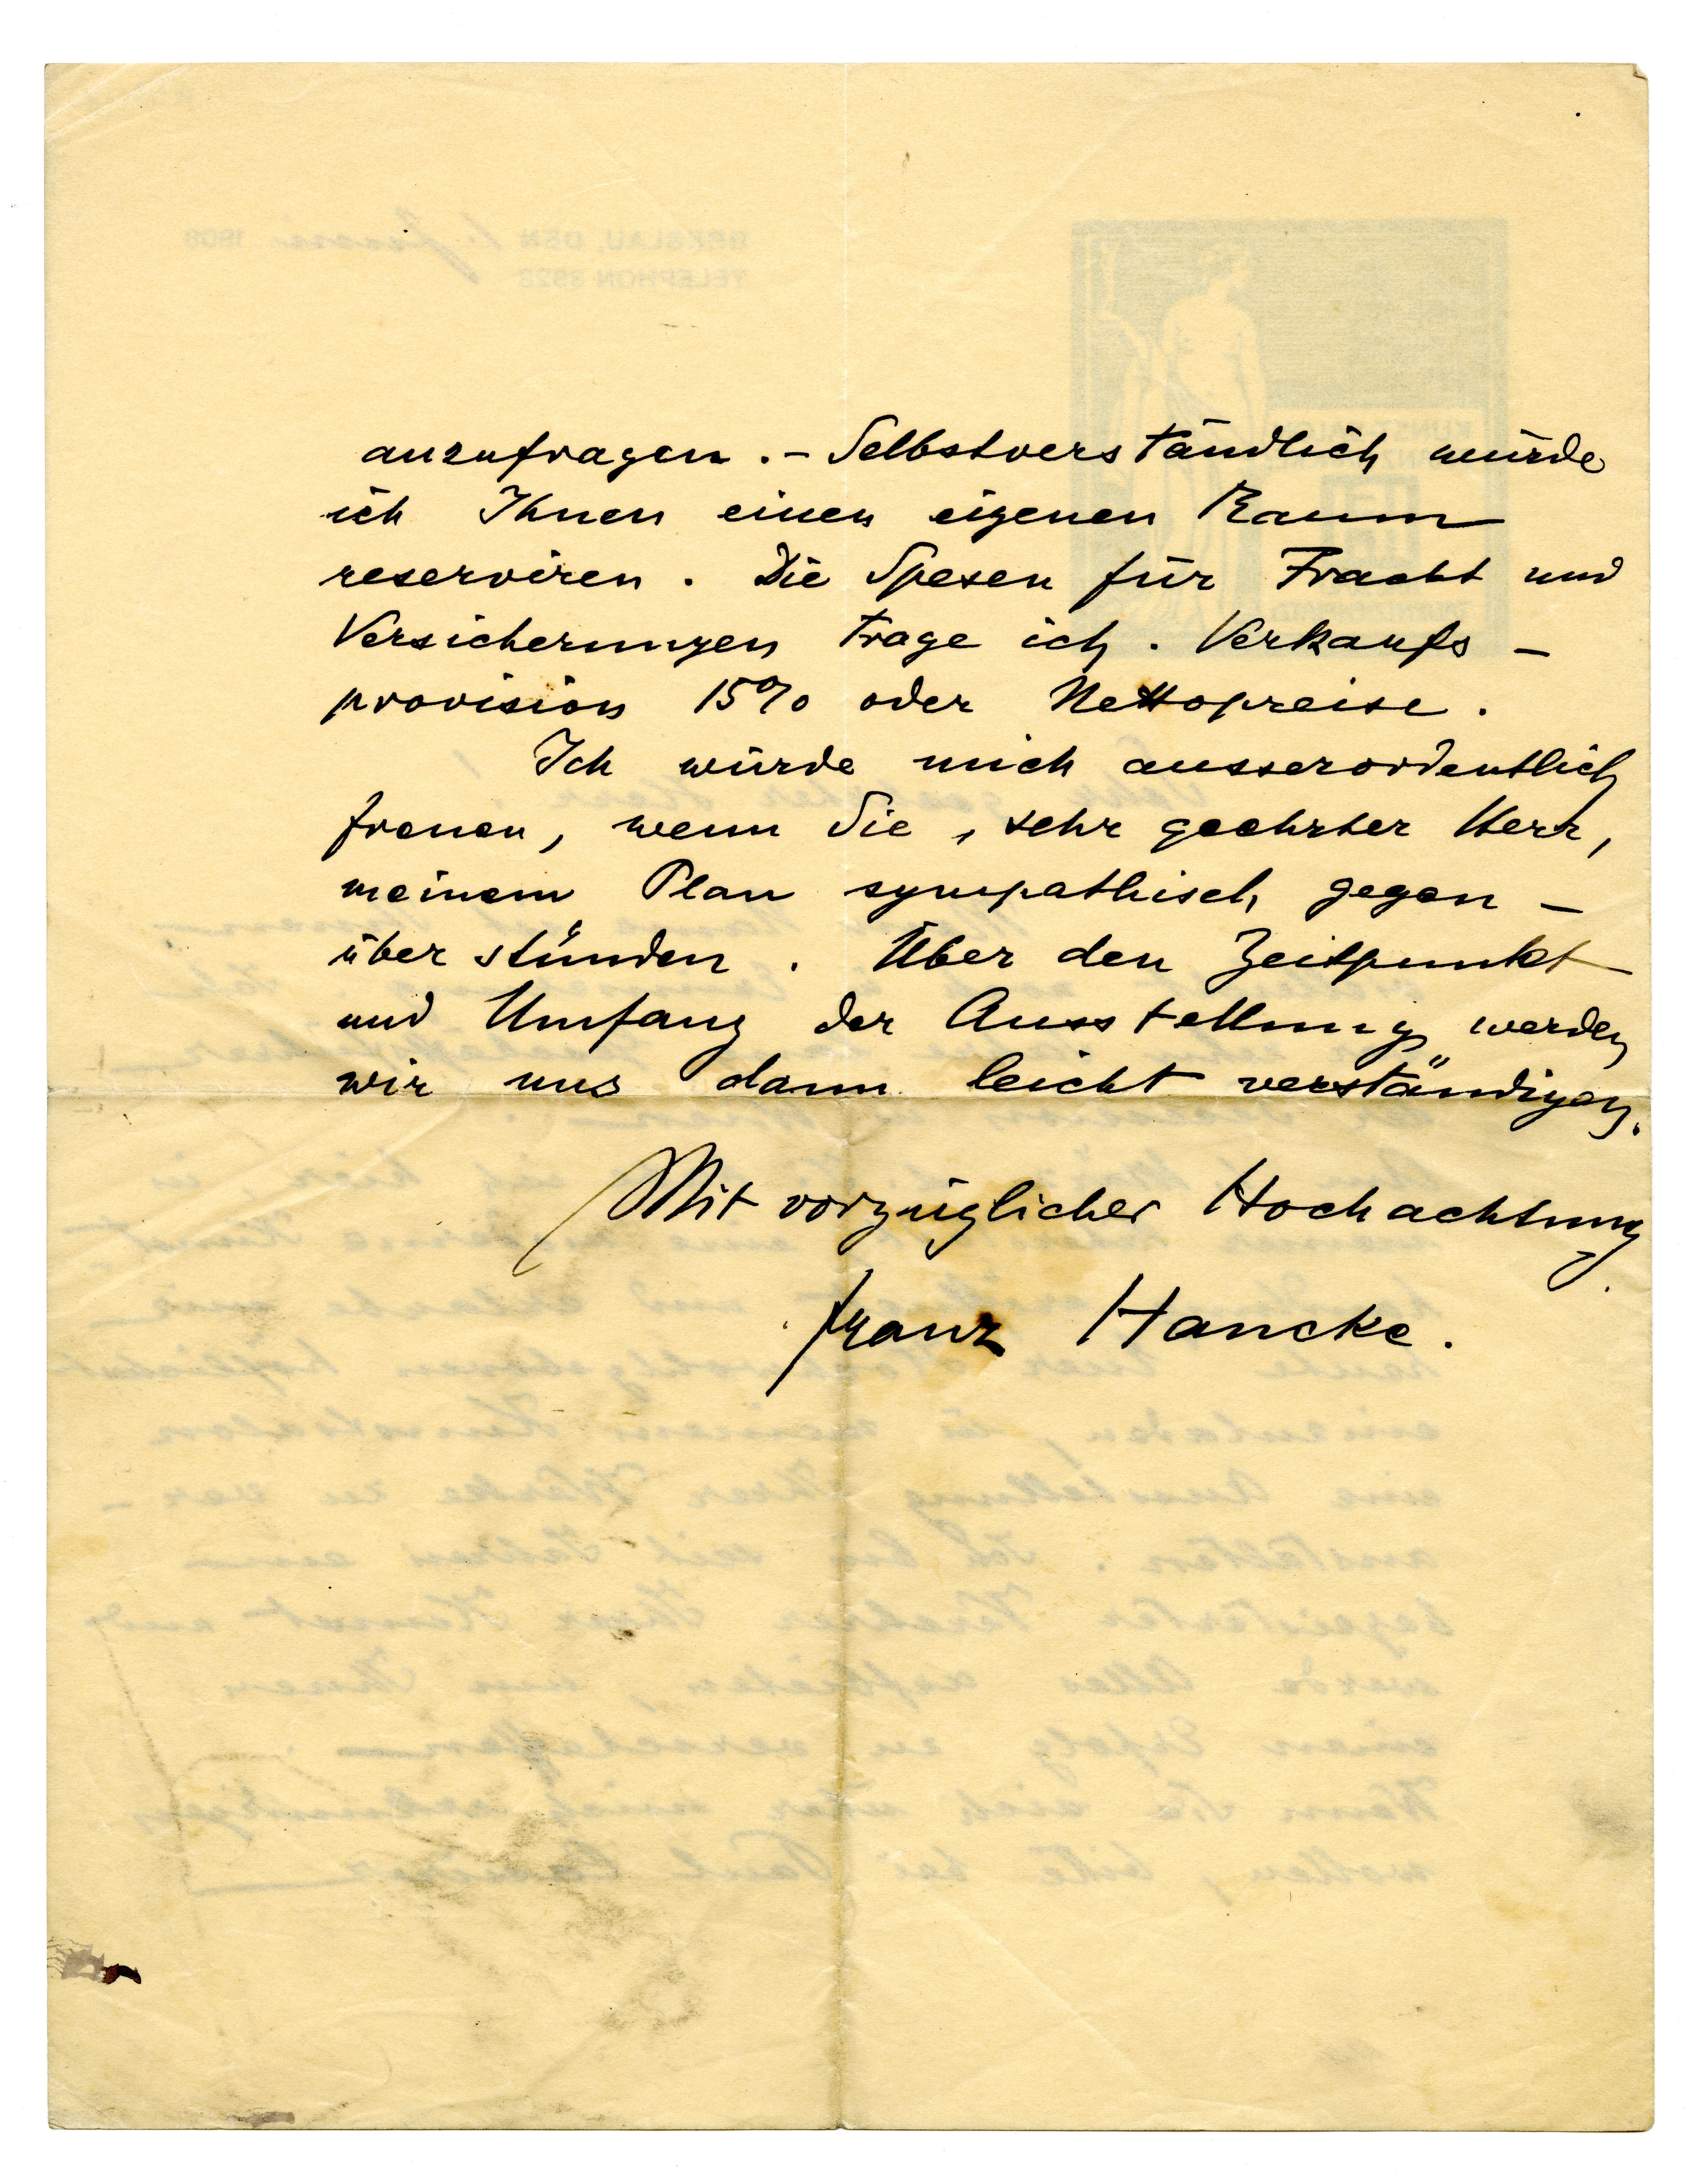 anzufragen. – Selbstverständlich würde
ich Ihnen einen eigenen Raum
reserviren. Die Spesen für Fracht und
Versicherungen trage ich. Verkaufs –
provision 15% oder Nettopreise.
Ich würde mich ausserordentlich
freuen, wenn Sie, sehr geehrter Herr,
meinem Plan sympathisch gegen –
über stünden. Über den Zeitpunkt
und Umfang der Ausstellung werden
wir uns dann leicht verständigen.
Mit vorzüglicher Hochachtung
Franz Hancke.